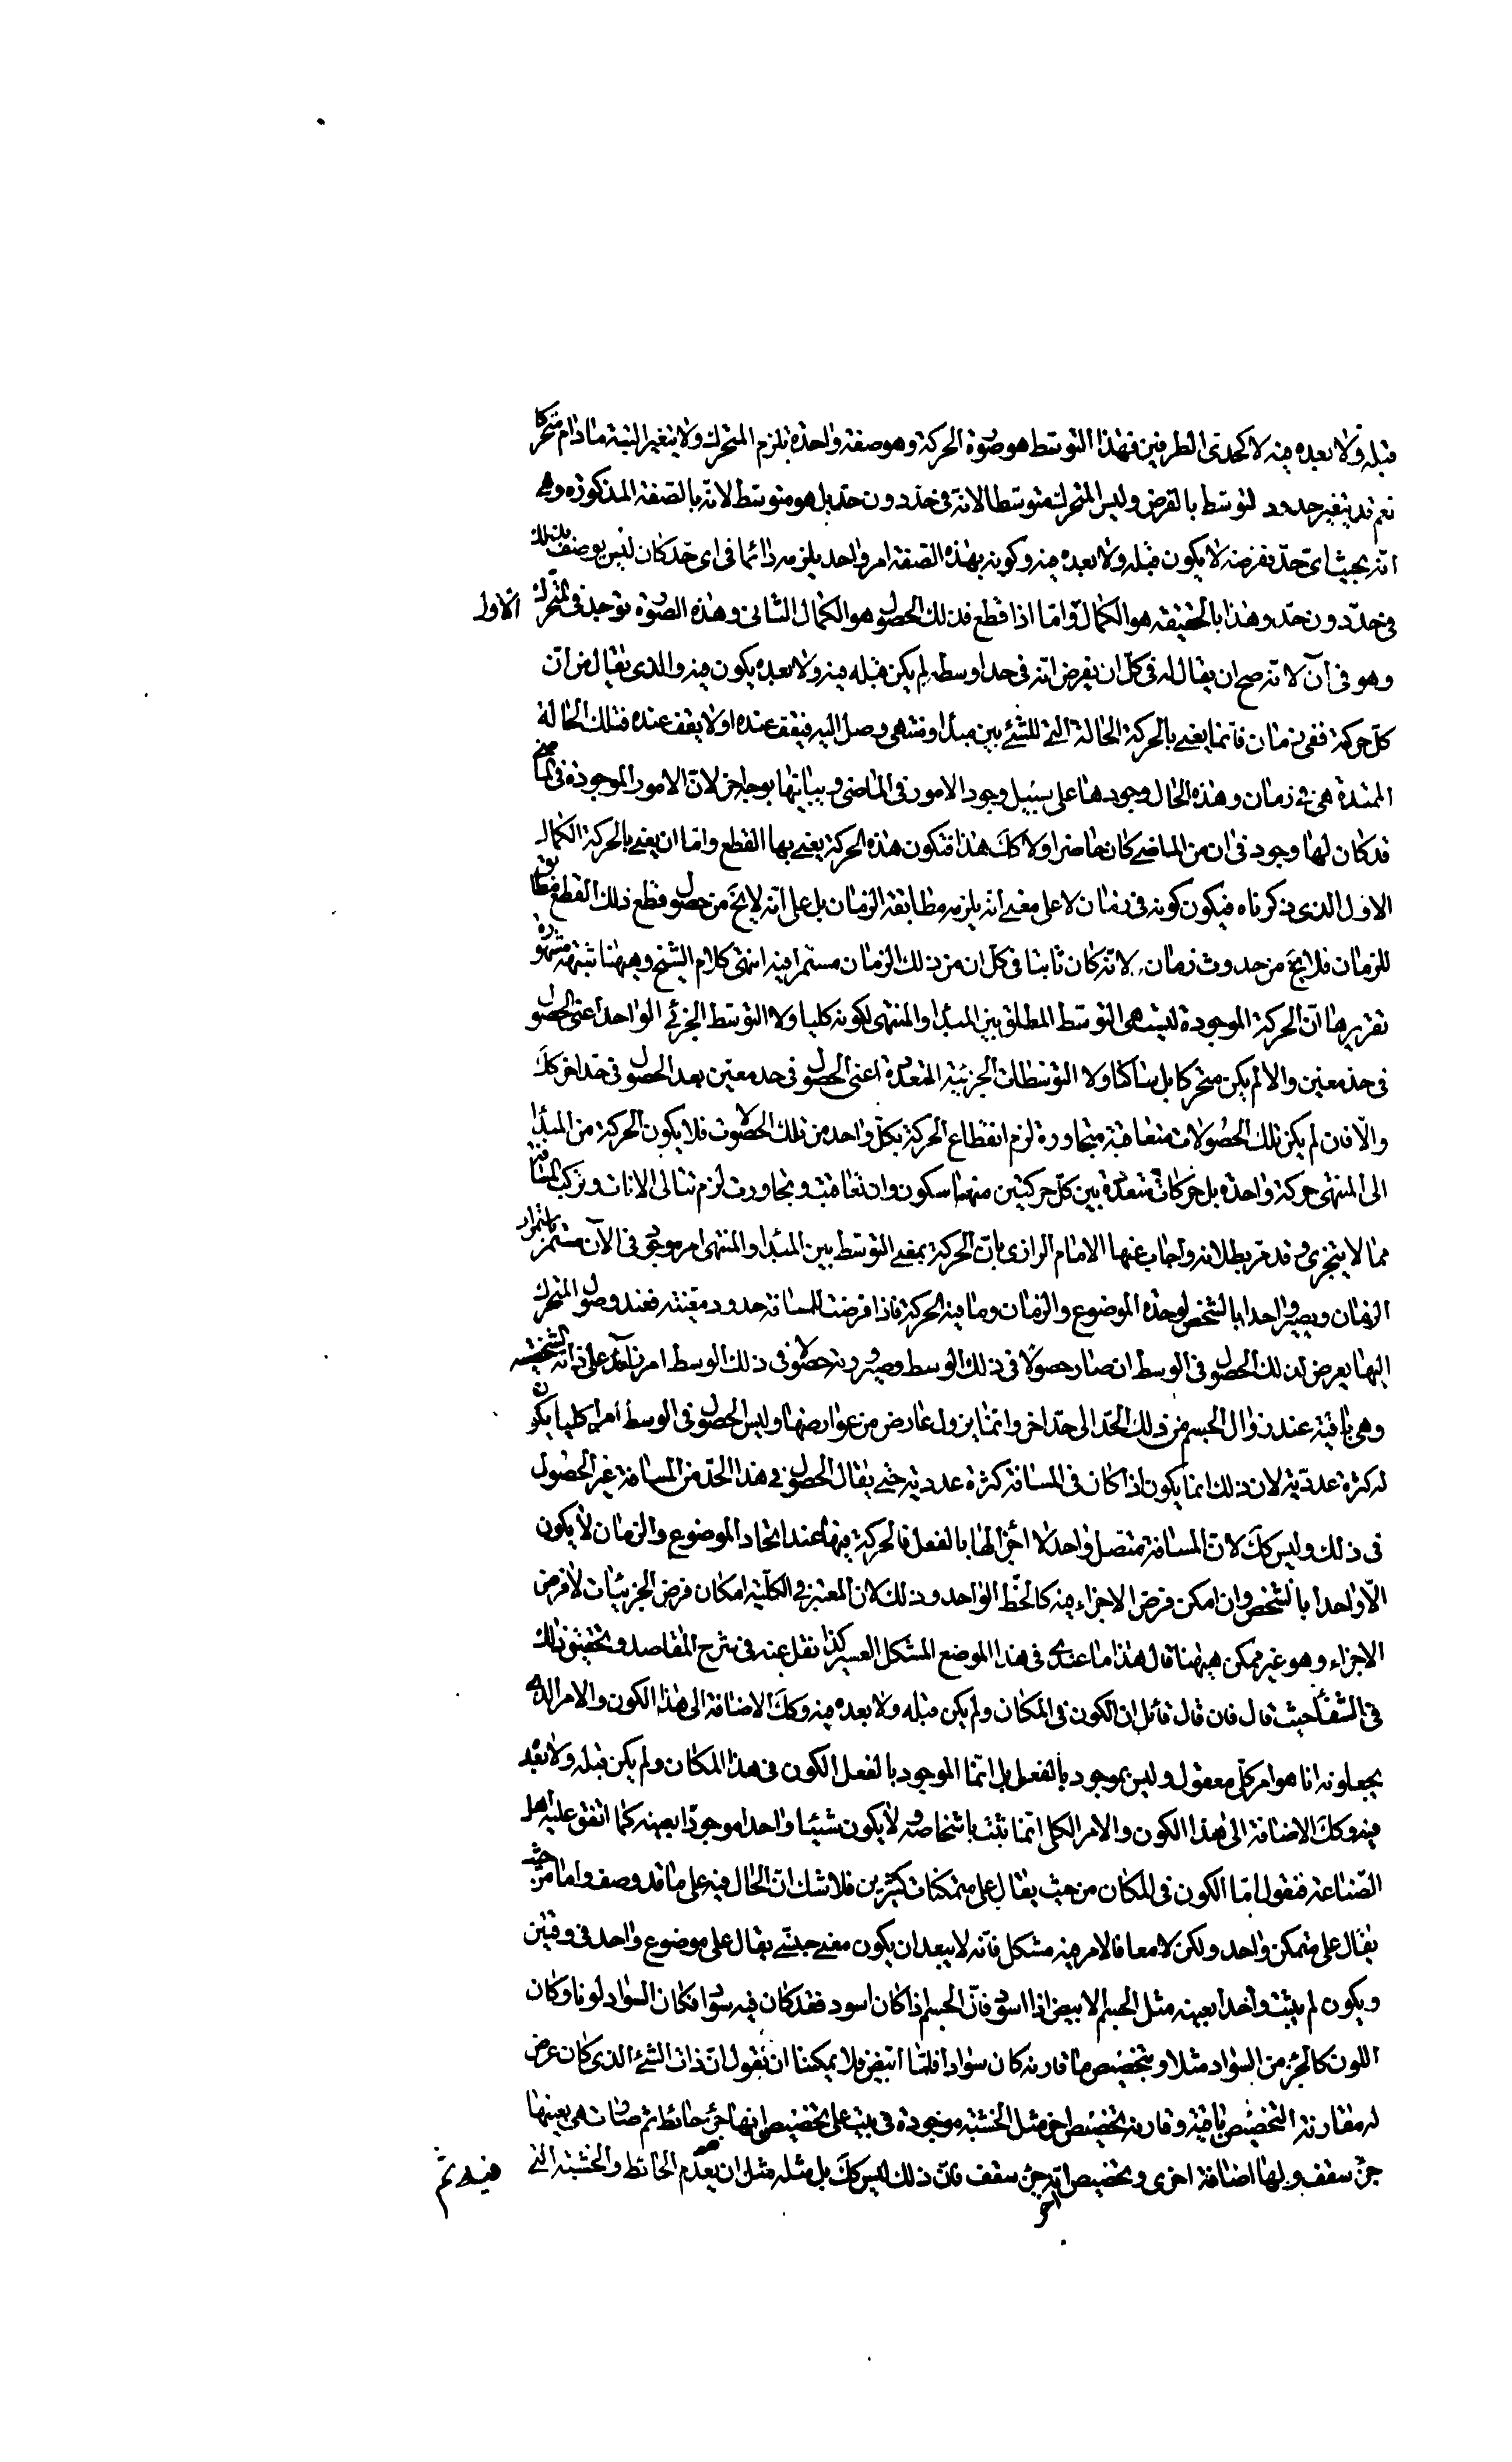 قبله ولا بعده فيه لا كحدى الطرفين فهذا التوسط هو صورة الحركة وهو صفة واحدة تلزم المتحرك ولا يتغير البتة ما دام متحركا
نعم قد يتغير حدود التوسط بالفرض وليس المتحرك متوسطا لانه فى حد دون حد بل هو متوسط لانه بالصفة المذكورة وهى
انه بحيث اى حد تفرضه لا يكون قبله ولا بعده فيه وكونه بهذه الصفة امر واحد يلزمه دائما فى اى حد كان ليس يوصف بذلك
فى حد دون حد وهذا بالحقيقة هو الكمال الاول واما اذا قطع فذلك الحصول هو الكمال الثانى وهذه الصورة توجد فى المتحرك
وهو فى آن لانه صح ان يقال له فى كل ان يفرض انه فى حد اوسط لم يكن قبله فيه ولا بعده يكون فيه والذى يقال من ان
كل حركة ففى زمان فانما يعنى بالحركة الحالة التى للشئ بين مبدا ومنتهى وصل اليه فيقف عنده او لا يقف عنده فتلك الحالة
الممتدة هى فى زمان وهذه الحال وجودها على سبيل وجود الامور فى الماضى ويباينها بوجه اخر لان الامور الموجودة فى الماضى
قد كان لها وجود فى ان من الماضى كان حاضرا ولا كك هذا فتكون هذه الحركة يعنى بها القطع واما ان يعنى بالحركة الكمال
الاول الذى ذكرناه فيكون كونه فى زمان لا على معنى انه يلزمه مطابقة الزمان بل على انه لا يخ من حصول قطع ذلك القطع مطابق
للزمان فلا يخ من حدوث زمان لانه كان ثابتا فى كل ان من ذلك الزمان مستمرا فيه انتهى كلام الشيخ وههنا شبهة مشهورة
تقريرها ان الحركة الموجودة ليست هى التوسط المطلق بين المبدا والمنتهى لكونه كليا ولا التوسط الجزئى الواحد اعنى الحصول
فى حد معين والا لم يكن متحركا بل ساكنا ولا التوسطات الجزئية المتعددة اعنى الحصول فى حد معين بعد الحصول فى حد اخر كك
والا فان لم يكن تلك الحصولات متعاقبة متجاورة لزم انقطاع الحركة بكل واحد من تلك الحصولات فلا يكون الحركة من المبدا
الى المنتهى حركة واحدة بل حركات متعددة بين كل حركتين منهما سكون وان تعاقبت وتجاورت لزم تتالى الانات وتركب المسافة
مما لا يتجزى وقد مر بطلانه واجاب عنها الامام الرازى بان الحركة بمعنى التوسط بين المبدا والمنتهى امر موجود فى الآن مستمر باستمرار
الزمان ويصير واحدا بالشخص لوحدة الموضوع والزمان وما فيه الحركة فاذا فرضت للمسافة حدود معينة فعند وصول المتحرك
اليها يعرض لذلك الحصول فى الوسط ان صار حصولا فى ذلك الوسط وصيرورته حصولا فى ذلك الوسط امر زائد على ذاته الشخصية
وهى باقية عند زوال الجسم من ذلك الحد الى حد اخر وانما يزول عارض من عوارضها وليس الحصول فى الوسط امرا كليا يكون
له كثرة عددية لان ذلك انما يكون اذا كان فى المسافة كثرة عددية حتى يقال الحصول فى هذا الحد من المسافة غير الحصول
فى ذلك وليس كك لان المسافة متصل واحد لا اجزا لها بالفعل فالحركة فيها عند اتحاد الموضوع والزمان لا يكون
الا واحدا بالشخص وان امكن فرض الاجزاء فيه كالخط الواحد وذلك لان المعتبر فى الكلية امكان فرض الجزئيات لا فرض
الاجزاء وهو غير ممكن ههنا قال هذا ما عندى فى هذا الموضع المشكل العسير كذا نقل عنه فى شرح المقاصد وتحقيق ذلك
فى الشفا حيث قال فان قال قائل ان الكون فى المكان ولم يكن قبله ولا بعده فيه وكك الاضافة الى هذا الكون والامر الذى
يجعلونه انا هو امر كلى معقول وليس بموجود بالفعل بل انما الموجود بالفعل الكون فى هذا المكان ولم يكن قبله ولا بعد
فيه وكك الاضافة الى هذا الكون والامر الكلى انما يثبت باشخاصه ولا يكون شيئا واحدا موجودا بعينه كما اتفق عليه اهل
الصناعة فنقول اما الكون فى المكان من حيث يقال على متمكنات كثيرين فلا شك ان الحال فيه على ما قد وصف واما من حيث
يقال على متمكن واحد ولكن لا معا فالامر فيه مشكل فانه لا يبعد ان يكون معنى جنسى يقال على موضوع واحد فى وقتين
ويكون لم يثبت واحدا بعينه مثل الجسم الابيض اذا اسود فان الجسم اذا كان اسود فقد كان فيه سواد فكان السواد لونا وكان
اللون كالجزء من السواد مثلا وبتخصيص ما قارنه كان سوادا فلما ابيض فلا يمكننا ان نقول ان ذات الشئ الذى كان عرض
له مقارنة التخصيص باقية وقارنه تخصيص اخر مثل الخشبة موجودة فى بيت على تخصيص انها جزء حائط ثم صارت هى بعينها
جزء سقف ولها اضافة اخرى وتخصيص اخر انه جزء سقف فان ذلك ليس كك بل مثله مثل ان يعدم الحائط والخشبة التى
فيه ثم